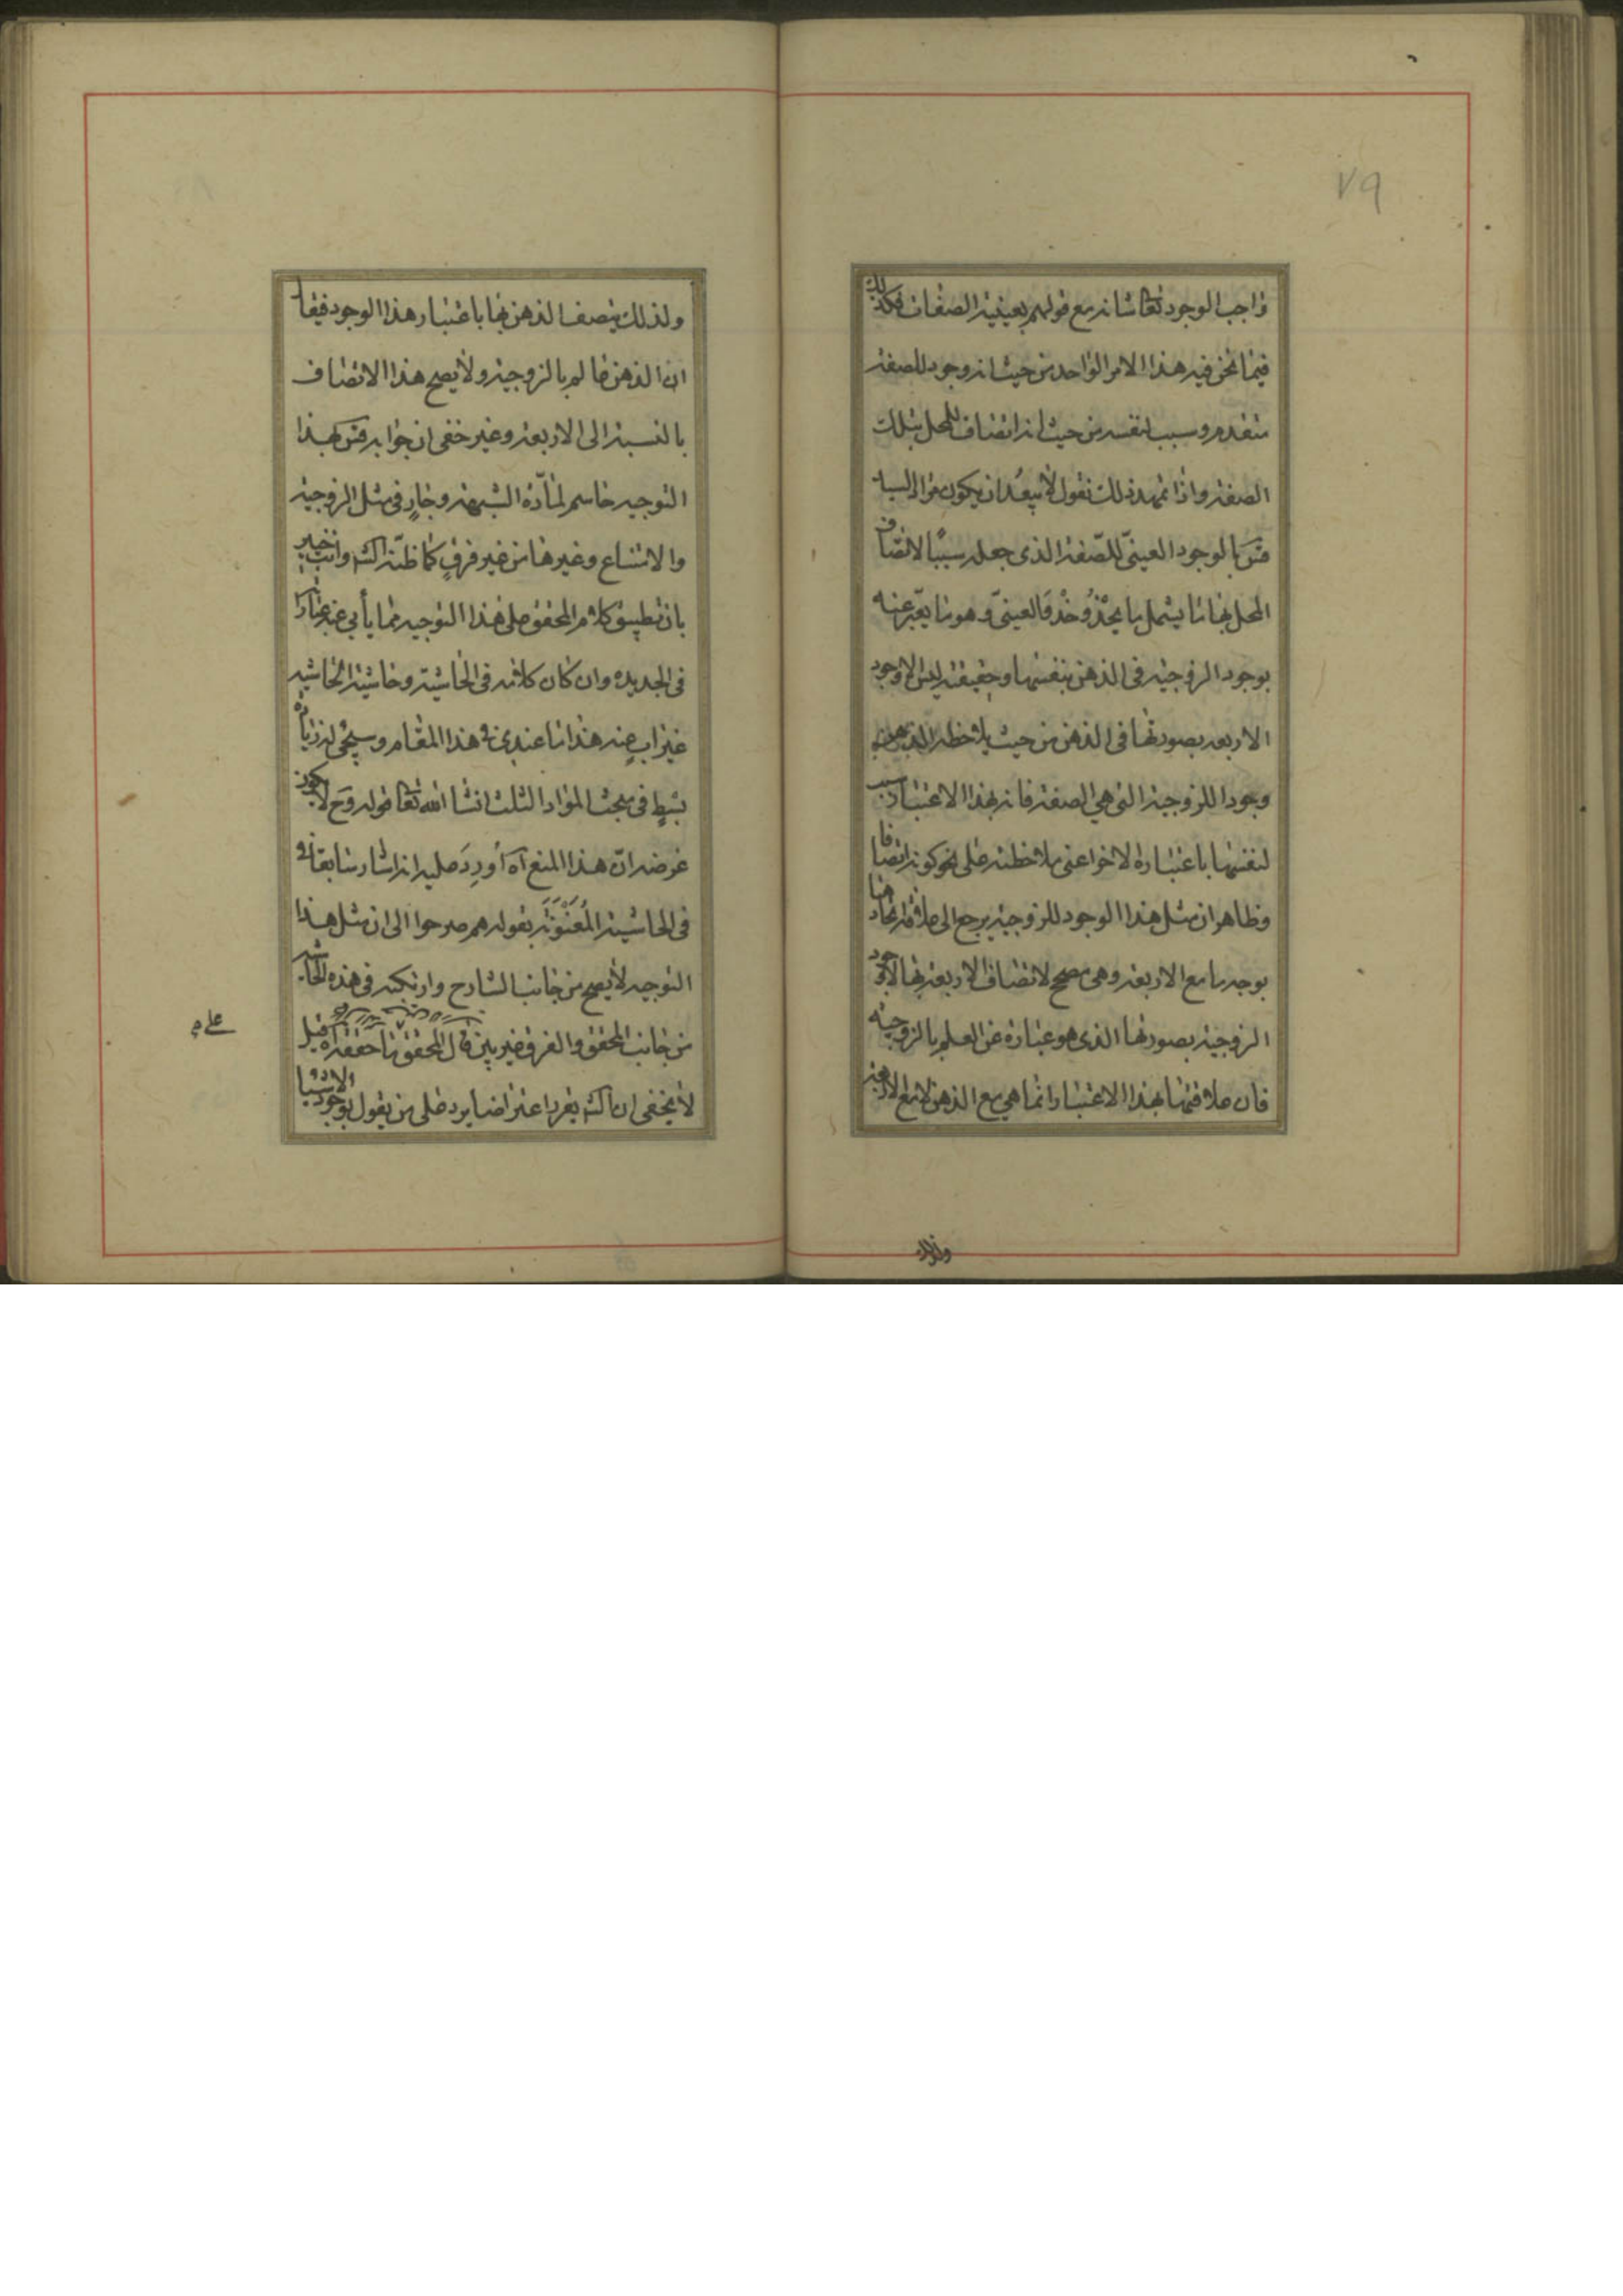 ٧٩
واجب الوجود تعا شانه مع قولهم بعينية الصفات فكذلك
فيما نحن فيه هذا الامر الواحد من حيث انه وجود للصفة
متقدم وسبب لنفسه من حيث انه اتصاف للمحل بتلك
الصفة واذا تمهد ذلك نقول لا يبعد ان يكون مراد السيد
قس بالوجود العينىّ للصّفة الذى جعله سببًا لاتصاف
المحل بها ما يشمل ما يحذو حذو العينىّ وهو ما يعّبر عنه
بوجود الزوجية فى الذهن بنفسها وحقيقته ليس الا وجود
الاربعه بصورتها فى الذهن من حيث يلاحظه الذهن
وجودا للزوجية التى هى الصفة فانه بهذا الاعتبار سبب
لنفسها باعتباره الاخر اعنى ملاحظته على نحو كونه اتصافا
وظاهر ان مثل هذا الوجود للزوجية يرجع الى علاقة اتحادها
بوجه ما مع الاربعة وهى مصحح لاتصاف الاربعة بها لا وجود
الزوجية بصورتها الذى هو عبارة عن العلم بالزوجية
فان علاقتها بهذا الاعتبار انما هى مع الذهن لا مع الاربعة
ولذلك
ولذلك يتصف الذهن بها باعتبار هذا الوجود فيقا
ان الذهن عالم بالزوجية ولا يصح هذا الاتصاف
بالنسبة الى الاربعة وغير خفى ان جوابه قس بهذا
التوجيه حاسم لمادّة الشبهة وجارٍ فى مثل الزوجية
والامتناع وغيرها من غير فرقٍ كما ظنّه اكثر وانت خبير
بان تطبيق كلام المحقق على هذا التوجيه مما يأبى عنه عباراته
فى الجديده وان كان كلامه فى الحاشية وحاشية الحاشيه
غير ابٍ عنه هذا ما عندى فى هذا المقام وسيجئ له زيادة
بسطٍ فى مبحث المواد الثلث انشا الله تعا قوله وح لا يكون
غرضه انّ هذا المنع آه أورِدَ عليه انه اشار سابقا
فى الحاشية المُعَنْوَنَة بقوله هم صرحوا الى ان مثل هذا
التوجيه لا يصح من جانب الشارح وارتكبه فى هذه الحاشيه
من جانب المحقق والفرق غير بين قال المحقق ما حققه آه قيل
لا يخفى ان ما ذكره بقوله اعتراضا يرد على من يقول بوجود الاشيا